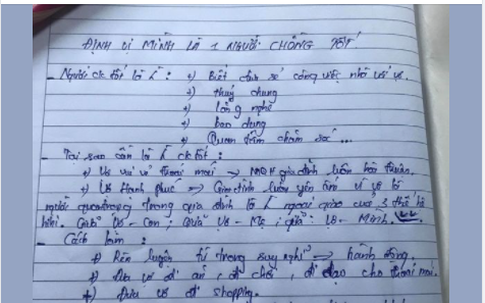 ĐỊNH VỊ MÌNH LÀ 1 NGƯỜI CHỒNG TỐT
- Người ck tốt là : +) Biết chia sẻ công việc nhà với vợ.
+) thuỷ chung
+) lắng nghe
+) bao dung
+) Quan tâm chăm sóc ...
- Tại sao cần là ck tốt :
+) Vợ vui vẻ thoải mái → gia đình luôn hoà thuận.
+) Vợ Hạnh phúc → Gia đình luôn yên ấm vì vợ là
người quan trọng trong gia đình là ngoại giao của 3 thế hệ
Giữa Vợ - Con ; giữa Vợ - Mẹ ; giữa : Vợ - Mình.
- Cách làm :
+) Rèn luyện từ trong suy nghĩ → hành động.
+) Đưa vợ đi ăn , đi chơi , đi dạo cho thoải mái.
+) Đưa vợ đi shopping.